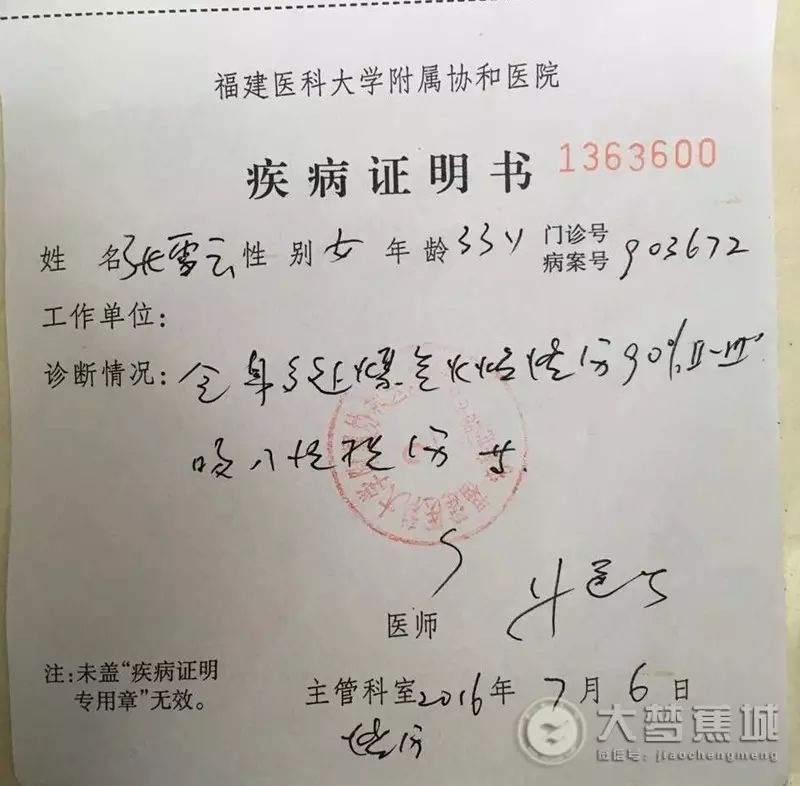 福建医科大学附属协和医院
疾病证明书 1363600
姓 名 张雪云 性 别 女 年 龄 33岁 门诊号 病案号 903672
工作单位:
诊断情况: 全身多处煤气火焰烧伤90%Ⅱ-Ⅲ°
吸入性损伤
医师
注:未盖“疾病证明
专用章”无效。
主管科室 2016年 7月 6日
烧伤
大梦蕉城
微信号:jiaochengmeng